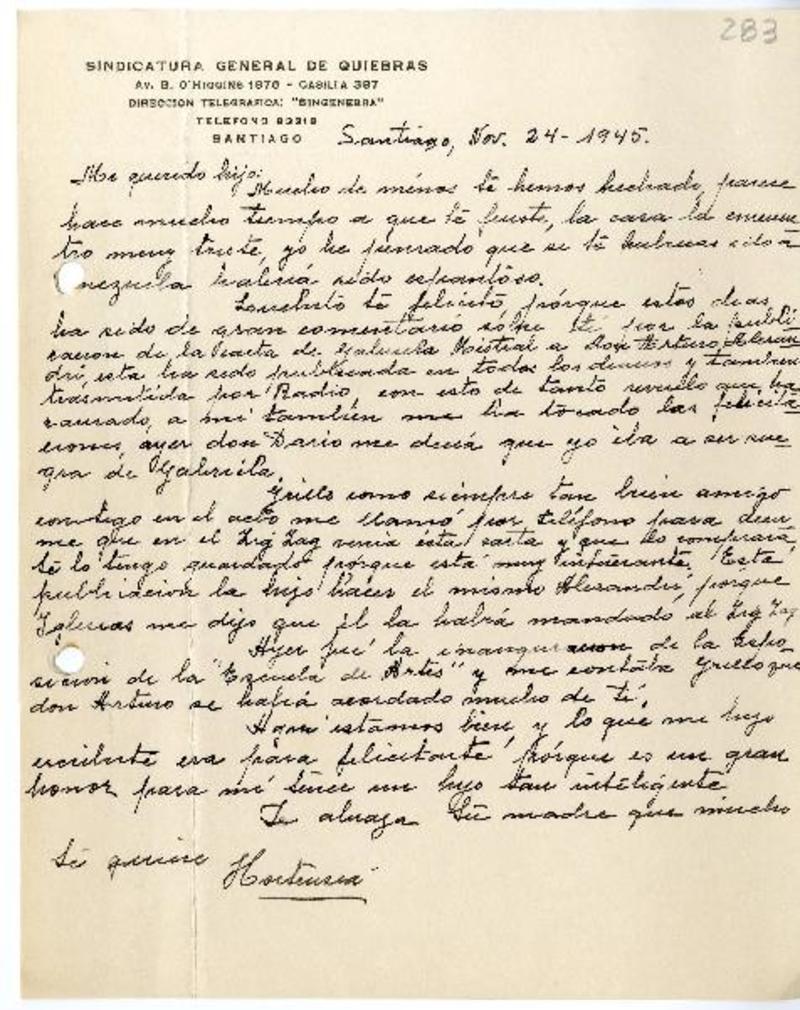 283
SINDICATURA GENERAL DE QUIEBRAS
AV. B. O'HIGGINS 1870 - CASILLA 387
DIRECCION TELEGRAFICA: "SINGENEBRA"
TELEFONO 82218
SANTIAGO
Santiago, Nov. 24-1945.
Mi querido hijo:
Mucho de ménos té hemos hechado, parece
hace mucho tiempo a que té fuiste, la casa la encuen
tro muy triste, yo he pensado que si té hubieras ido a
nezuela habría sido espantoso.
Louchito té felicita, pórque estos dias
ha sido de gran comentario sobre ti por la publi
cacion de la carta de Gabriela Mistral a Don Arturo Alesan
dri, esta ha sido publicada en todos los diarios y tambien
trasmitida por Radio, con esto de tanto revuelo que ha
causado, a mi también me ha tocado las felicita
ciones, ayer don Dario me decía que yo iba a ser sue
gra de Gabriela.
Grillo como siempre tan buen amigo
contigo en el acto me llamó por teléfono para decir
me que en el Zig Zag venia esta carta y que lo comprara
té lo tengo guardado porque está muy interesante. Esta
publicacion la hizo hacer el mismo Alesandri, porque
Iglesias me dijo que él la habrá mandado al Zig Zag
Ayer fué la inauguracion de la Espo
sicion de la "Escuela de Artes" y me contaba Grillo que
don Arturo se habrá acordado mucho de ti.
Aqui estamos bien, y lo que me hizo
escribirte era para felicitarte, pórque es un gran
honor para mi tener un hijo tan inteligente
Te abraza tu madre que mucho
té quiere
Hortensia